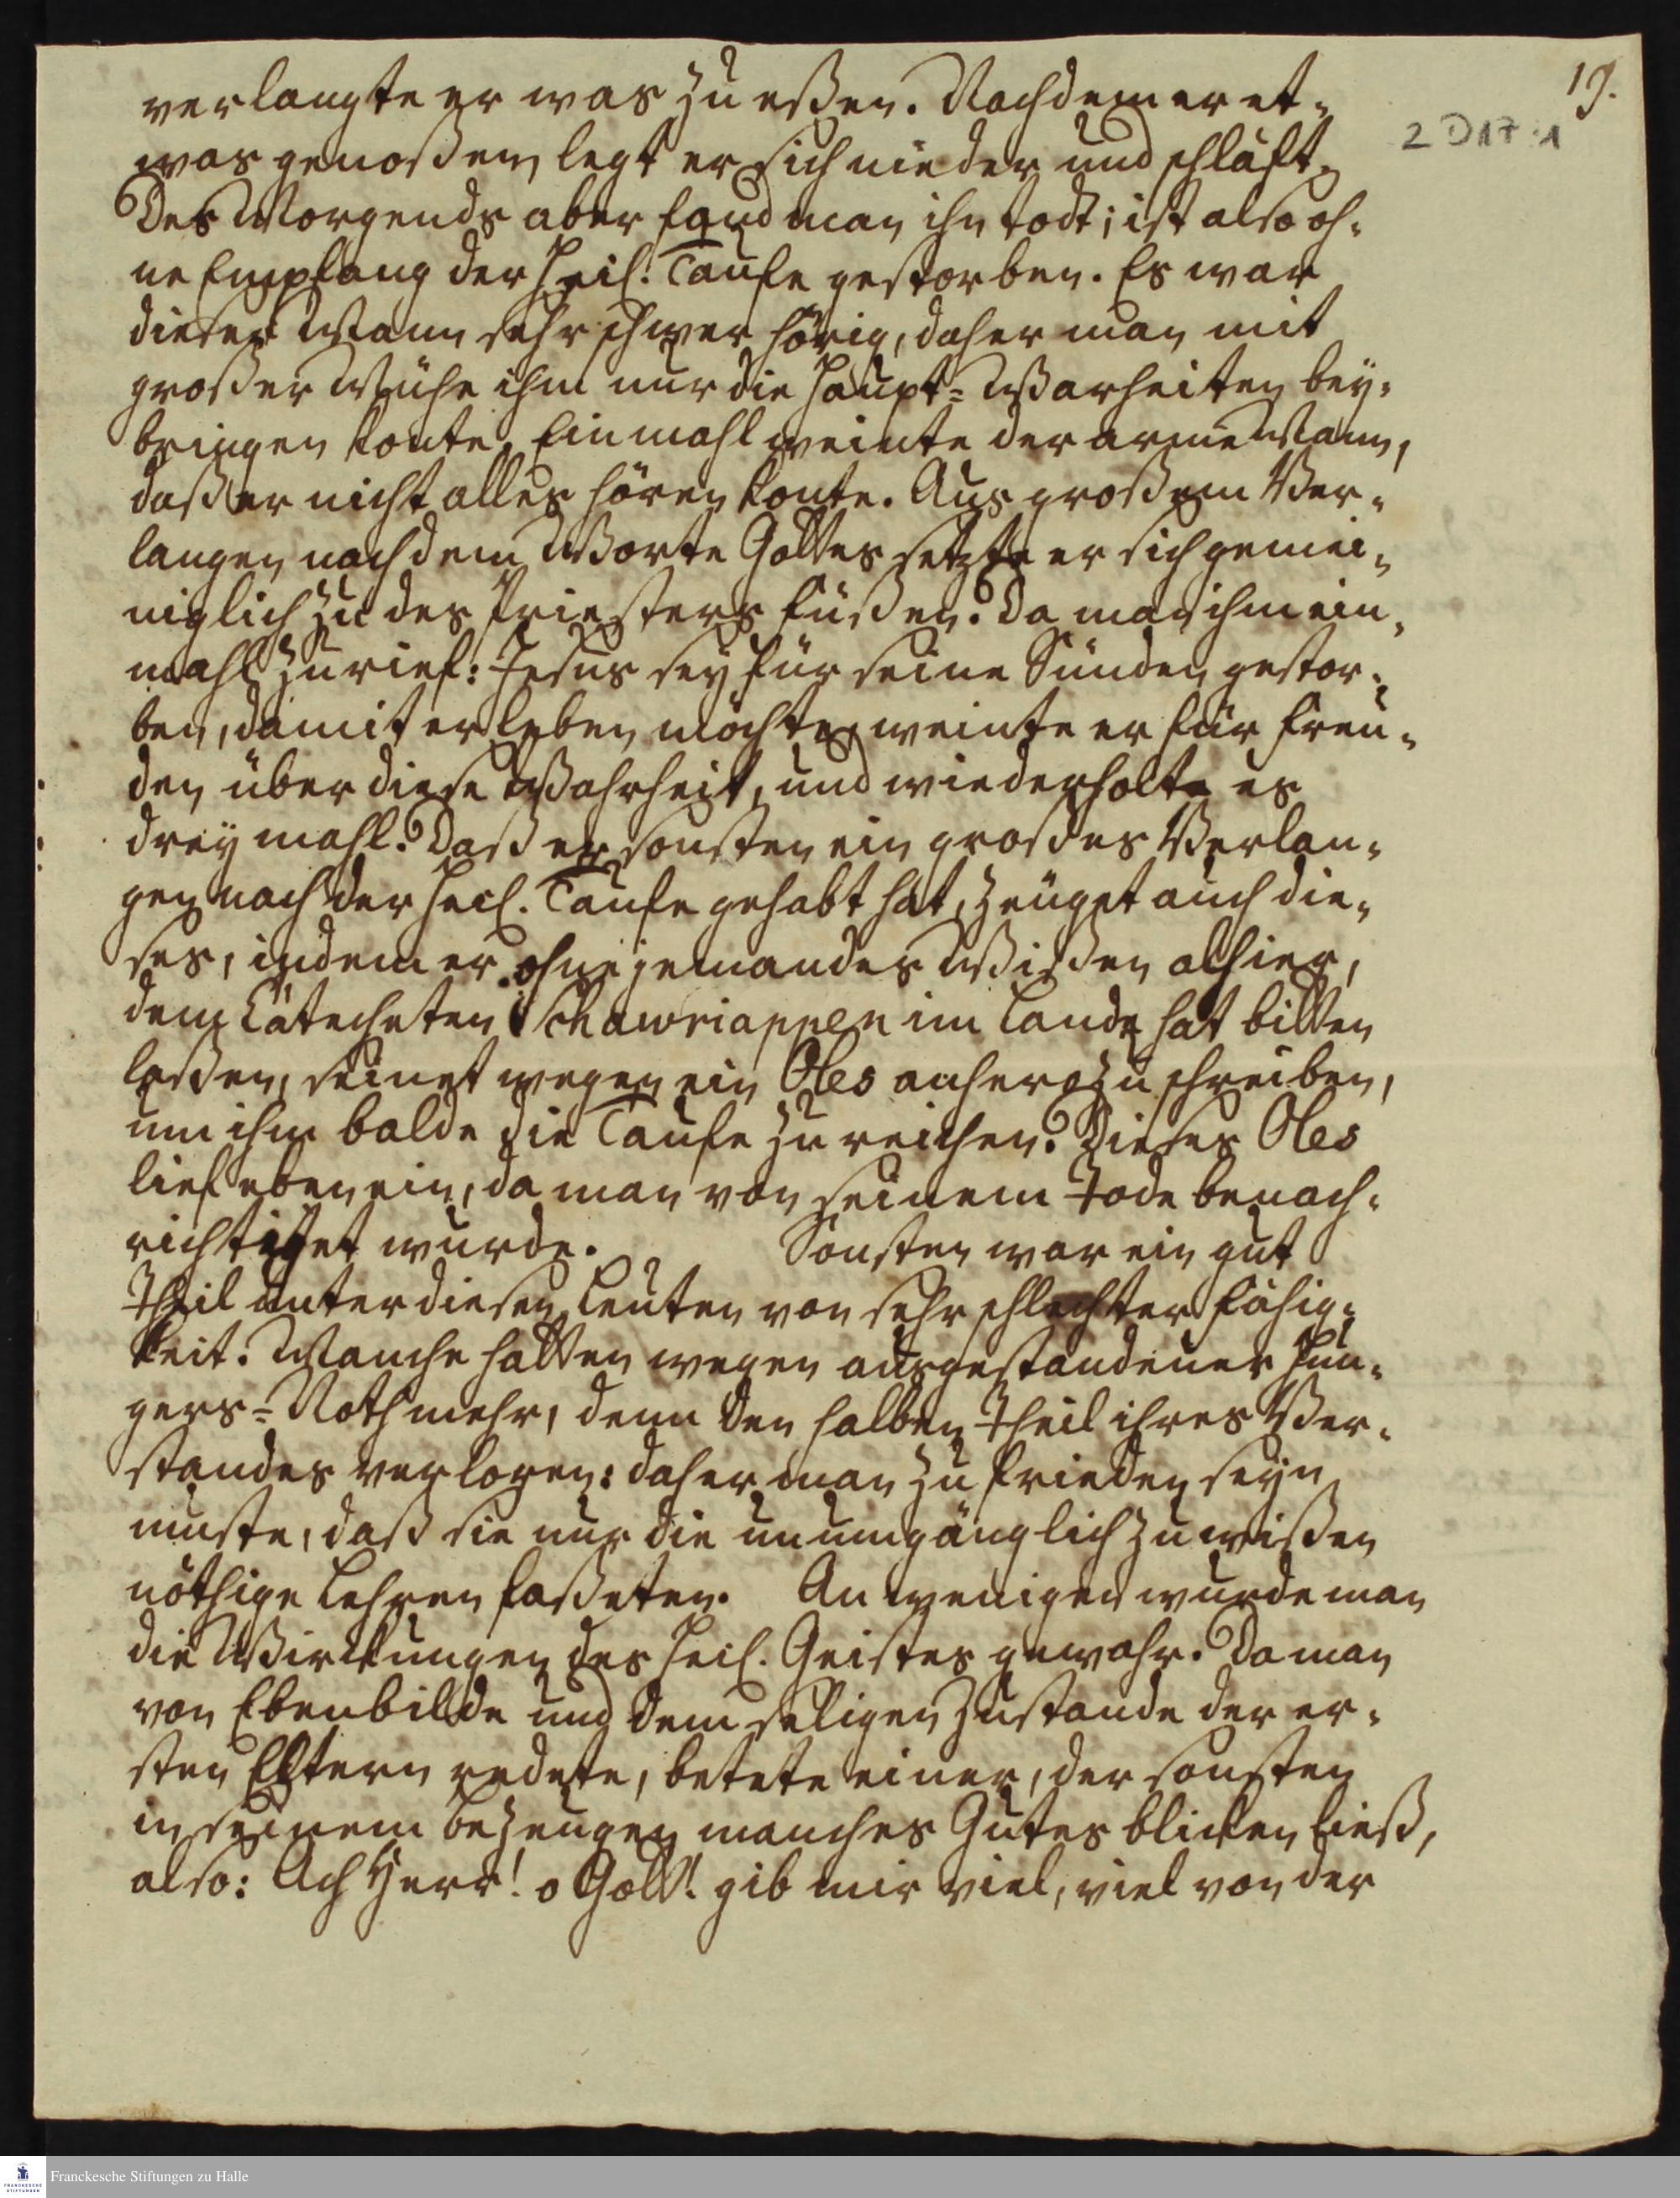 19.
2 D 17 : 1
verlangte er was zu eßen. Nachdem er et-
was genoßen, legt er sich nieder und schläft.
Des Morgends aber fand man ihn todt; ist also oh-
ne Empfang der Heil. Taufe gestorben. Es war
dieser Mann sehr schwer hörig, daher man mit
großer Mühe ihm nur die Haupt-Warheiten bey-
bringen konte. Einmahl weinte der arme Mann,
daß er nicht alles hören konte. Aus großem Ver-
langen nach dem Worte Gottes setzte er sich gemei-
niglich zu des Priesters Füßen. Da man ihm ein-
mahl zurief: Jesus sey für seine Sünden gestor-
ben, damit er leben möchte, weinte er für Freu-
den über diese Wahrheit, und wiederholte es
dreymahl. Daß er sonsten ein großes Verlan-
gen nach der Heil. Taufe gehabt hat, zeuget auch die-
ses, indem er ohne jemandes Wißen alhier,
dem Catecheten Schawriappen im Lande hat bitten
laßen, seinet wegen ein Oles anhero zu schreiben,
um ihm balde die Taufe zu reichen. Dieses Oles
lief eben ein, da man von seinem Tode benach-
richtiget wurde. Sonsten war ein gut
Theil unter diesen Leuten von sehr schlechter Fähig-
keit. Manche hatten wegen ausgestandener Hun-
gers-Noth mehr, denn den halben Theil ihres Ver-
standes verloren: daher man zu frieden seyn
muste, daß sie nur die unumgänglich zu wißen
nöthige Lehren faßeten. An wenigen wurde man
die Wirckungen des Heil. Geistes gewahr. Da man
von Ebenbilde und dem seligen Zustande der er-
sten Eltern redete, betete einer, der sonsten
in seinem Bezeugen manches Gutes blicken ließ,
also: Ach Herr! o Gott! gib mir viel, viel von der
Franckesche Stiftungen zu Halle